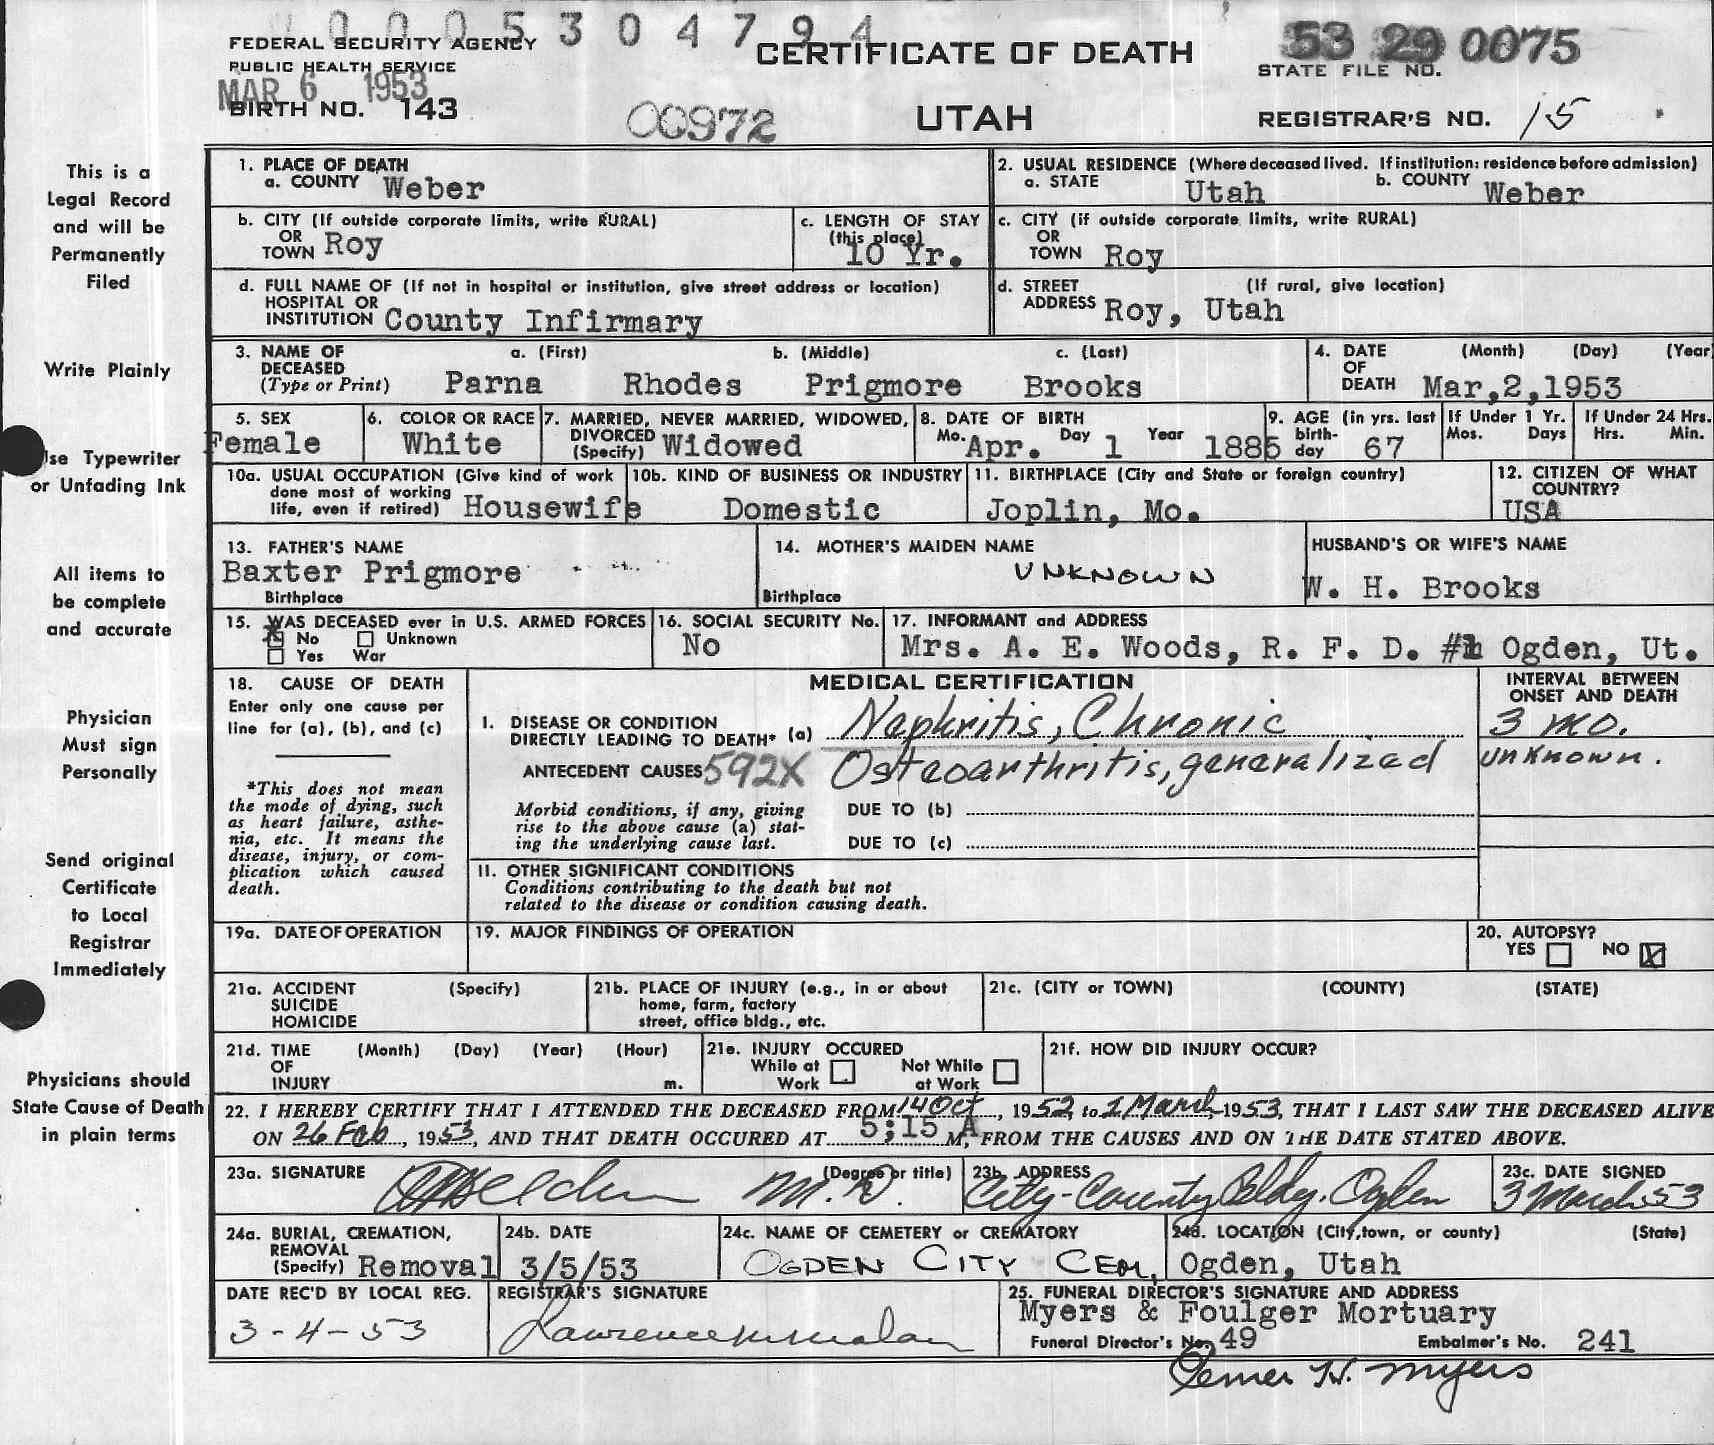 0005304794
FEDERAL SECURITY AGENCY
PUBLIC HEALTH SERVICE
MAR 6 1953
BIRTH NO. 143
00972
CERTIFICATE OF DEATH
UTAH
53 29 0075
STATE FILE NO.
REGISTRAR'S NO. 15
This is a
Legal Record
and will be
Permanently
Filed
Write Plainly
Use Typewriter
or Unfading Ink
All items to
be complete
and accurate
Physician
Must sign
Personally
Send original
Certificate
to Local
Registrar
Immediately
Physicians should
State Cause of Death
in plain terms
1. PLACE OF DEATH
a. COUNTY Weber
2. USUAL RESIDENCE (Where deceased lived. If institution: residence before admission)
a. STATE Utah b. COUNTY Weber
b. CITY (If outside corporate limits, write RURAL)
OR
TOWN Roy
c. LENGTH OF STAY
(this place)
10 Yr.
c. CITY (if outside corporate limits, write RURAL)
OR
TOWN Roy
d. FULL NAME OF (If not in hospital or institution, give street address or location)
HOSPITAL OR
INSTITUTION County Infirmary
d. STREET (If rural, give location)
ADDRESS Roy, Utah
3. NAME OF DECEASED (Type or Print)
a. (First) b. (Middle) c. (Last)
Parna Rhodes Prigmore Brooks
4. DATE OF DEATH (Month) (Day) (Year)
Mar,2,1953
5. SEX
Female
6. COLOR OR RACE
White
7. MARRIED, NEVER MARRIED, WIDOWED,
DIVORCED (Specify) Widowed
8. DATE OF BIRTH
Mo. Apr. Day 1 Year 1885
9. AGE (in yrs. last birth-day 67
If Under 1 Yr.
Mos. Days
If Under 24 Hrs.
Hrs. Min.
10a. USUAL OCCUPATION (Give kind of work
done most of working
life, even if retired) Housewife
10b. KIND OF BUSINESS OR INDUSTRY
Domestic
11. BIRTHPLACE (City and State or foreign country)
Joplin, Mo.
12. CITIZEN OF WHAT
COUNTRY?
USA
13. FATHER'S NAME
Baxter Prigmore
Birthplace
14. MOTHER'S MAIDEN NAME
UNKNOWN
Birthplace
HUSBAND'S OR WIFE'S NAME
W. H. Brooks
15. WAS DECEASED ever in U.S. ARMED FORCES
No Unknown
Yes War
16. SOCIAL SECURITY No.
No
17. INFORMANT and ADDRESS
Mrs. A. E. Woods, R. F. D. #1 Ogden, Ut.
18. CAUSE OF DEATH
Enter only one cause per
line for (a), (b), and (c)
*This does not mean
the mode of dying, such
as heart failure, asthe-
nia, etc. It means the
disease, injury, or com-
plication which caused
death.
MEDICAL CERTIFICATION
INTERVAL BETWEEN
ONSET AND DEATH
I. DISEASE OR CONDITION
DIRECTLY LEADING TO DEATH* (a) Nephritis, Chronic
3 mo.
ANTECEDENT CAUSES 592X Osteoarthritis, generalized
unknown.
Morbid conditions, if any, giving
rise to the above cause (a) stat-
ing the underlying cause last.
DUE TO (b)
DUE TO (c)
II. OTHER SIGNIFICANT CONDITIONS
Conditions contributing to the death but not
related to the disease or condition causing death.
19a. DATE OF OPERATION
19. MAJOR FINDINGS OF OPERATION
20. AUTOPSY?
YES NO X
21a. ACCIDENT (Specify)
SUICIDE
HOMICIDE
21b. PLACE OF INJURY (e.g., in or about
home, farm, factory
street, office bldg., etc.
21c. (CITY or TOWN) (COUNTY) (STATE)
21d. TIME (Month) (Day) (Year) (Hour)
OF
INJURY m.
21e. INJURY OCCURED
While at Work
Not While at Work
21f. HOW DID INJURY OCCUR?
22. I HEREBY CERTIFY THAT I ATTENDED THE DECEASED FROM 14 Oct, 1952, to 2 March, 1953, THAT I LAST SAW THE DECEASED ALIVE
ON 26 Feb, 1953, AND THAT DEATH OCCURED AT 5;15 A M, FROM THE CAUSES AND ON THE DATE STATED ABOVE.
23a. SIGNATURE (Degree or title)
M.D.
23b. ADDRESS
City-County Bldg. Ogden
23c. DATE SIGNED
3 March 53
24a. BURIAL, CREMATION,
REMOVAL
(Specify) Removal
24b. DATE
3/5/53
24c. NAME OF CEMETERY or CREMATORY
OGDEN CITY CEM.
24d. LOCATION (City, town, or county) (State)
Ogden, Utah
DATE REC'D BY LOCAL REG.
3-4-53
REGISTRAR'S SIGNATURE
Lawrence
25. FUNERAL DIRECTOR'S SIGNATURE AND ADDRESS
Myers & Foulger Mortuary
Funeral Director's No. 49 Embalmer's No. 241
H. Myers